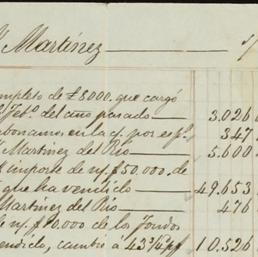 Martínez
mpleto de £8000. que cargó
Febo. del año pasado 3.026
bonamos en la c/ por esp. 347
Martinez del Río 5.600
importe de np. $50.000. de
que ha vendido 49.653
Martinez del Río 476
de np. $10.000 de los Fondos
endido, cambio á 43 3/4 10.526